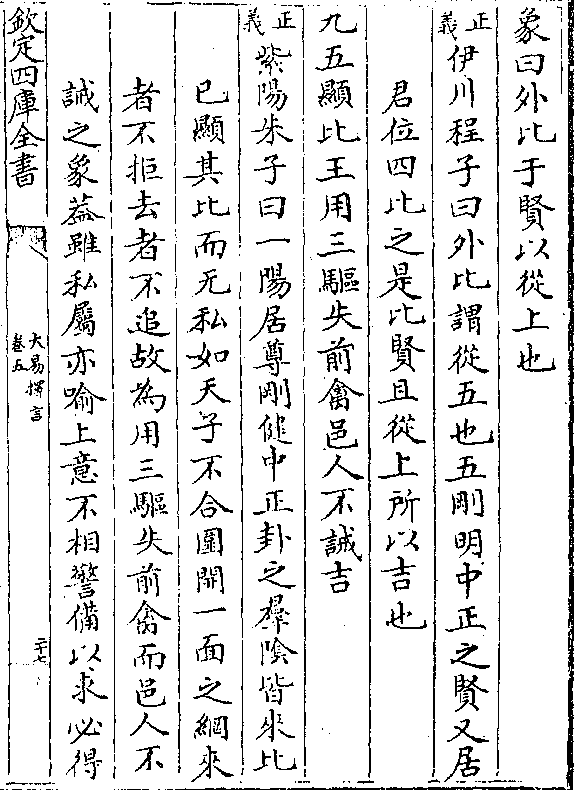 象曰外比于賢以從上也
正義伊川程子曰外比謂從五也五剛明中正之賢又居
君位四比之是比賢且從上所以吉也
九五顯比王用三驅失前禽邑人不誡吉
正義紫陽朱子曰一陽居尊剛健中正卦之羣隂皆來比
已顯其比而无私如天子不合圍開一面之網來
者不拒去者不追故為用三驅失前禽而邑人不
誡之象葢雖私屬亦喻上意不相警備以求必得
欽定四庫全書
大易擇言
卷五
二十七